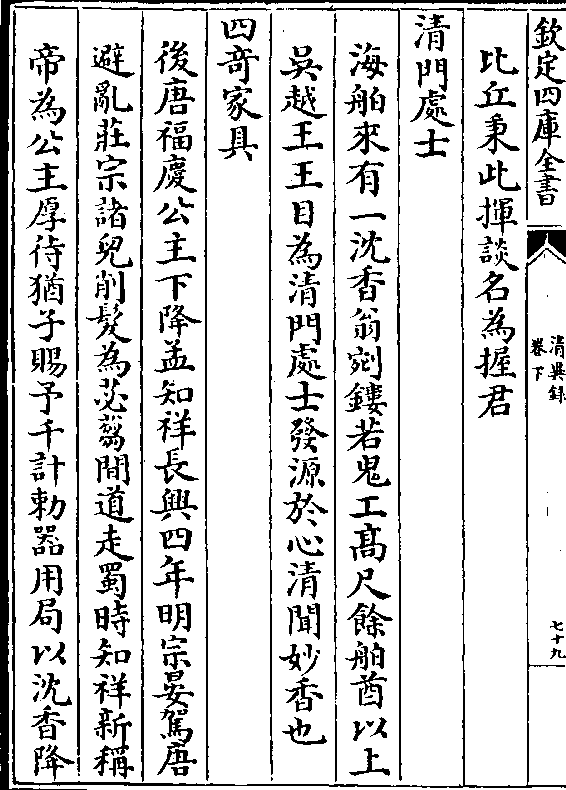 欽定四庫全書
清異錄
卷下
七十九
比丘秉此揮談名為握君
清門處士
海舶來有一沈香翁剜鏤若鬼工高尺餘舶酋以上
吳越王王目為清門處士發源於心清聞妙香也
四奇家具
後唐福慶公主下降孟知祥長興四年明宗晏駕唐
避亂莊宗諸兒削髮為苾蒭間道走蜀時知祥新稱
帝為公主厚待猶子賜予千計勅器用局以沈香降